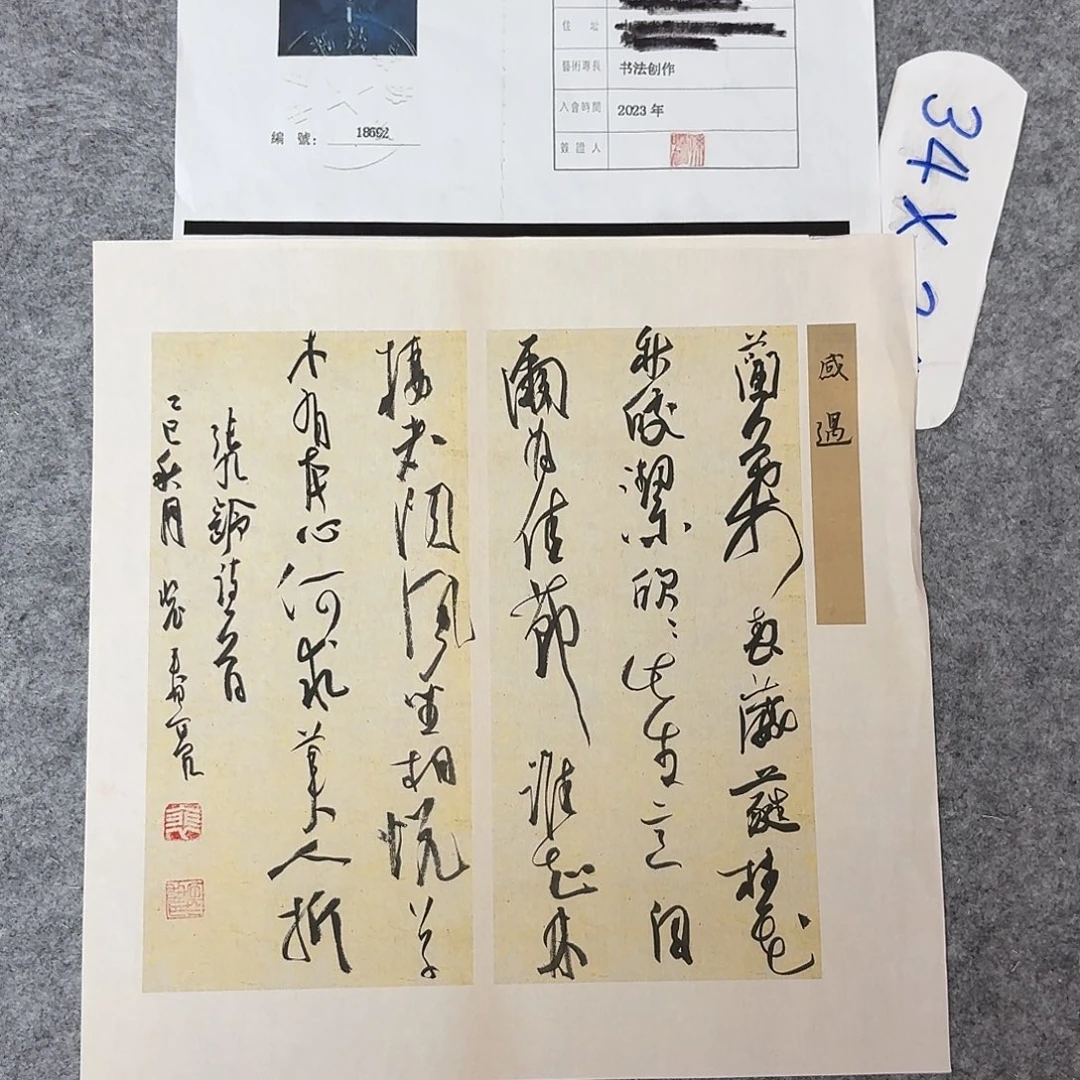 住 址
藝術專長 书法创作
入會時間 2023 年
簽證人
編 號: 18692
34 X
感遇
蘭葉春葳蕤桂花
秋皎潔欣〻此生意自
爾為佳節誰知林
棲者聞風坐相悅草
木有本心何求美人折
張九齡詩一首
乙巳秋月 春亮